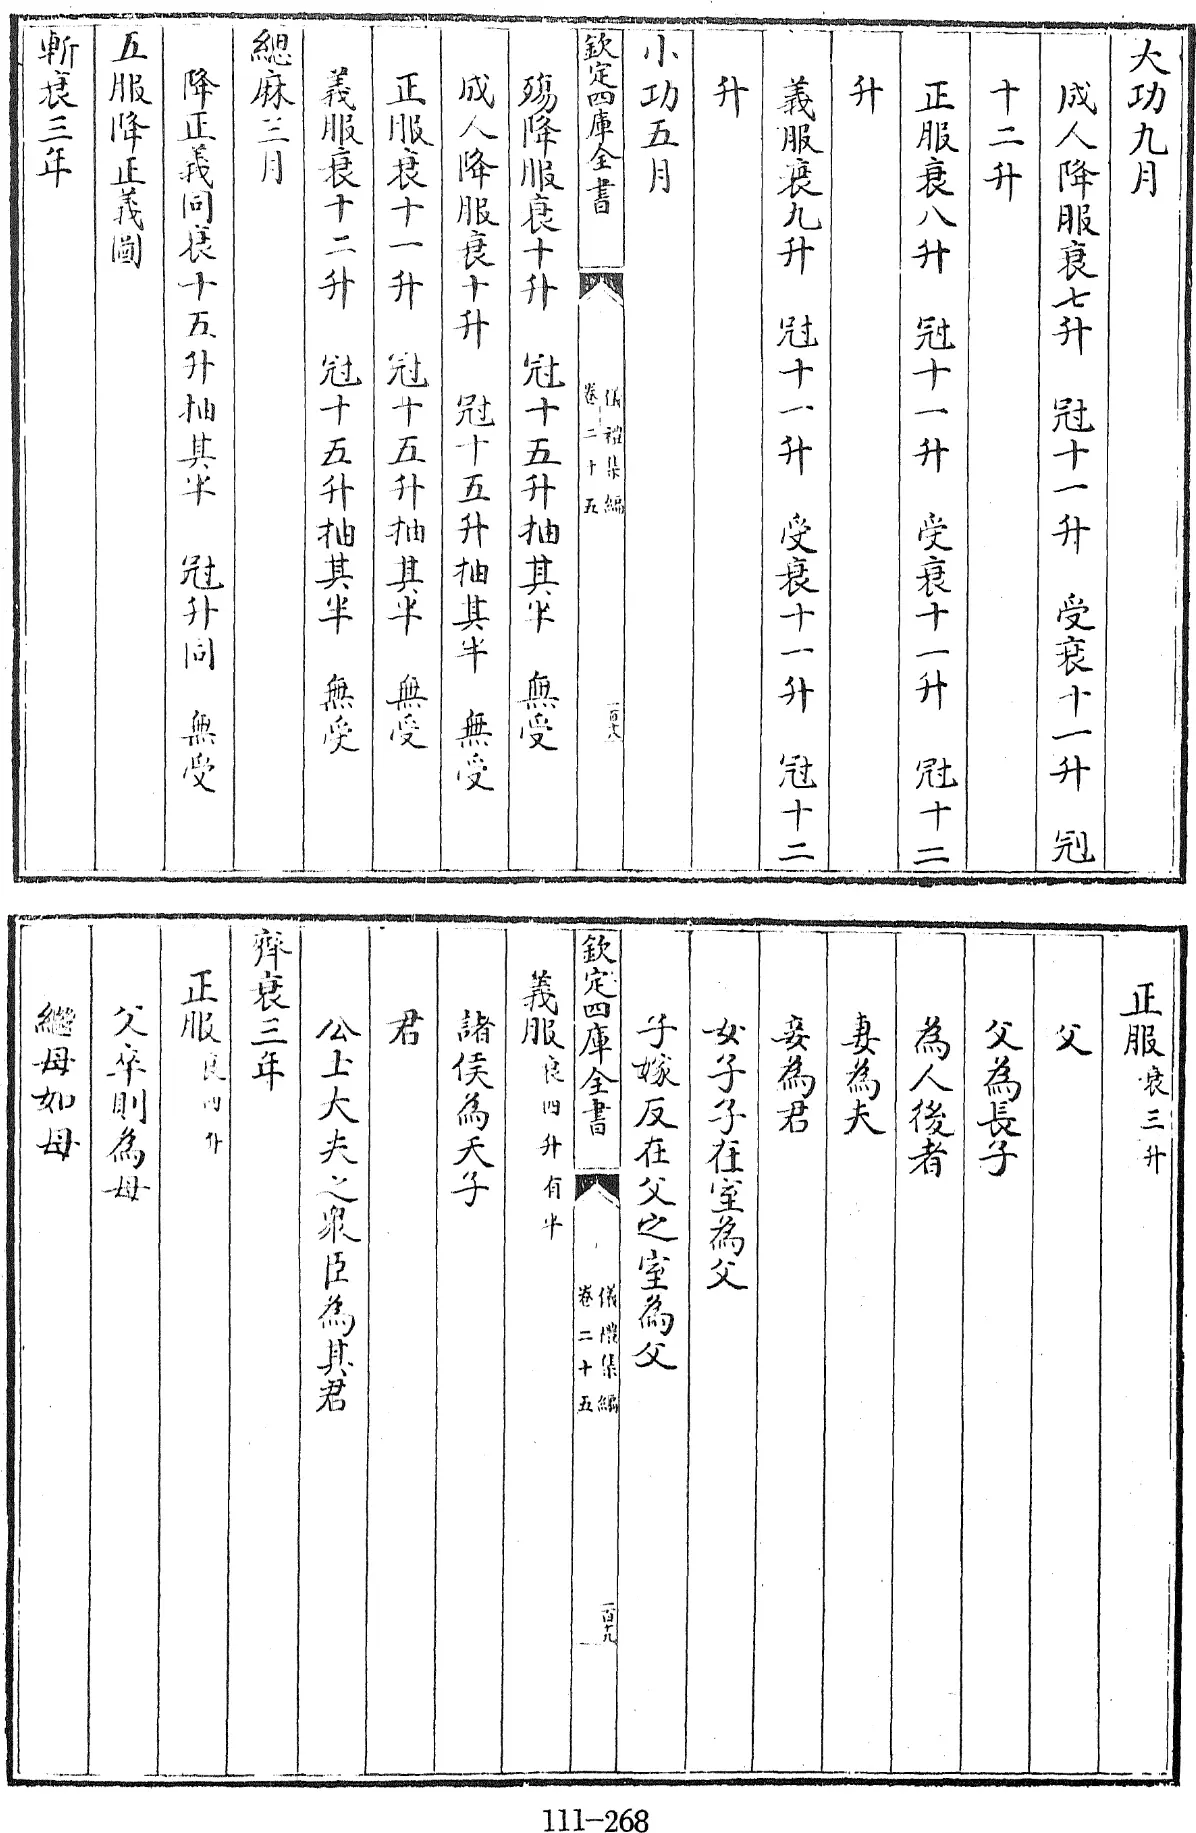 大功九月
成人降服衰七升　冠十一升　受衰十一升　冠
十二升
正服衰八升　冠十一升　受衰十一升　冠十二
升
義服衰九升　冠十一升　受衰十一升　冠十二
升
小功五月
欽定四庫全書
儀禮集編
卷二十五
一百十八
殤降服衰十升　冠十五升抽其半　無受
成人降服衰十升　冠十五升抽其半　無受
正服衰十一升　冠十五升抽其半　無受
義服衰十二升　冠十五升抽其半　無受
緦麻三月
降正義同衰十五升抽其半　冠升同　無受
五服降正義圖
斬衰三年
正服衰三升
父
父為長子
為人後者
妻為夫
妾為君
女子子在室為父
子嫁反在父之室為父
欽定四庫全書
儀禮集編
卷二十五
一百十九
義服衰四升有半
諸侯為天子
君
公士大夫之衆臣為其君
齊衰三年
正服衰四升
父卒則為母
繼母如母
111-268